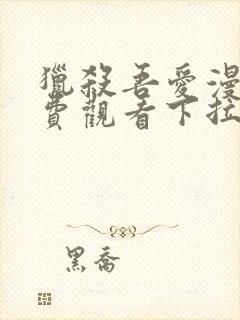 獵殺吾愛漫
費觀看下拉
黑喬